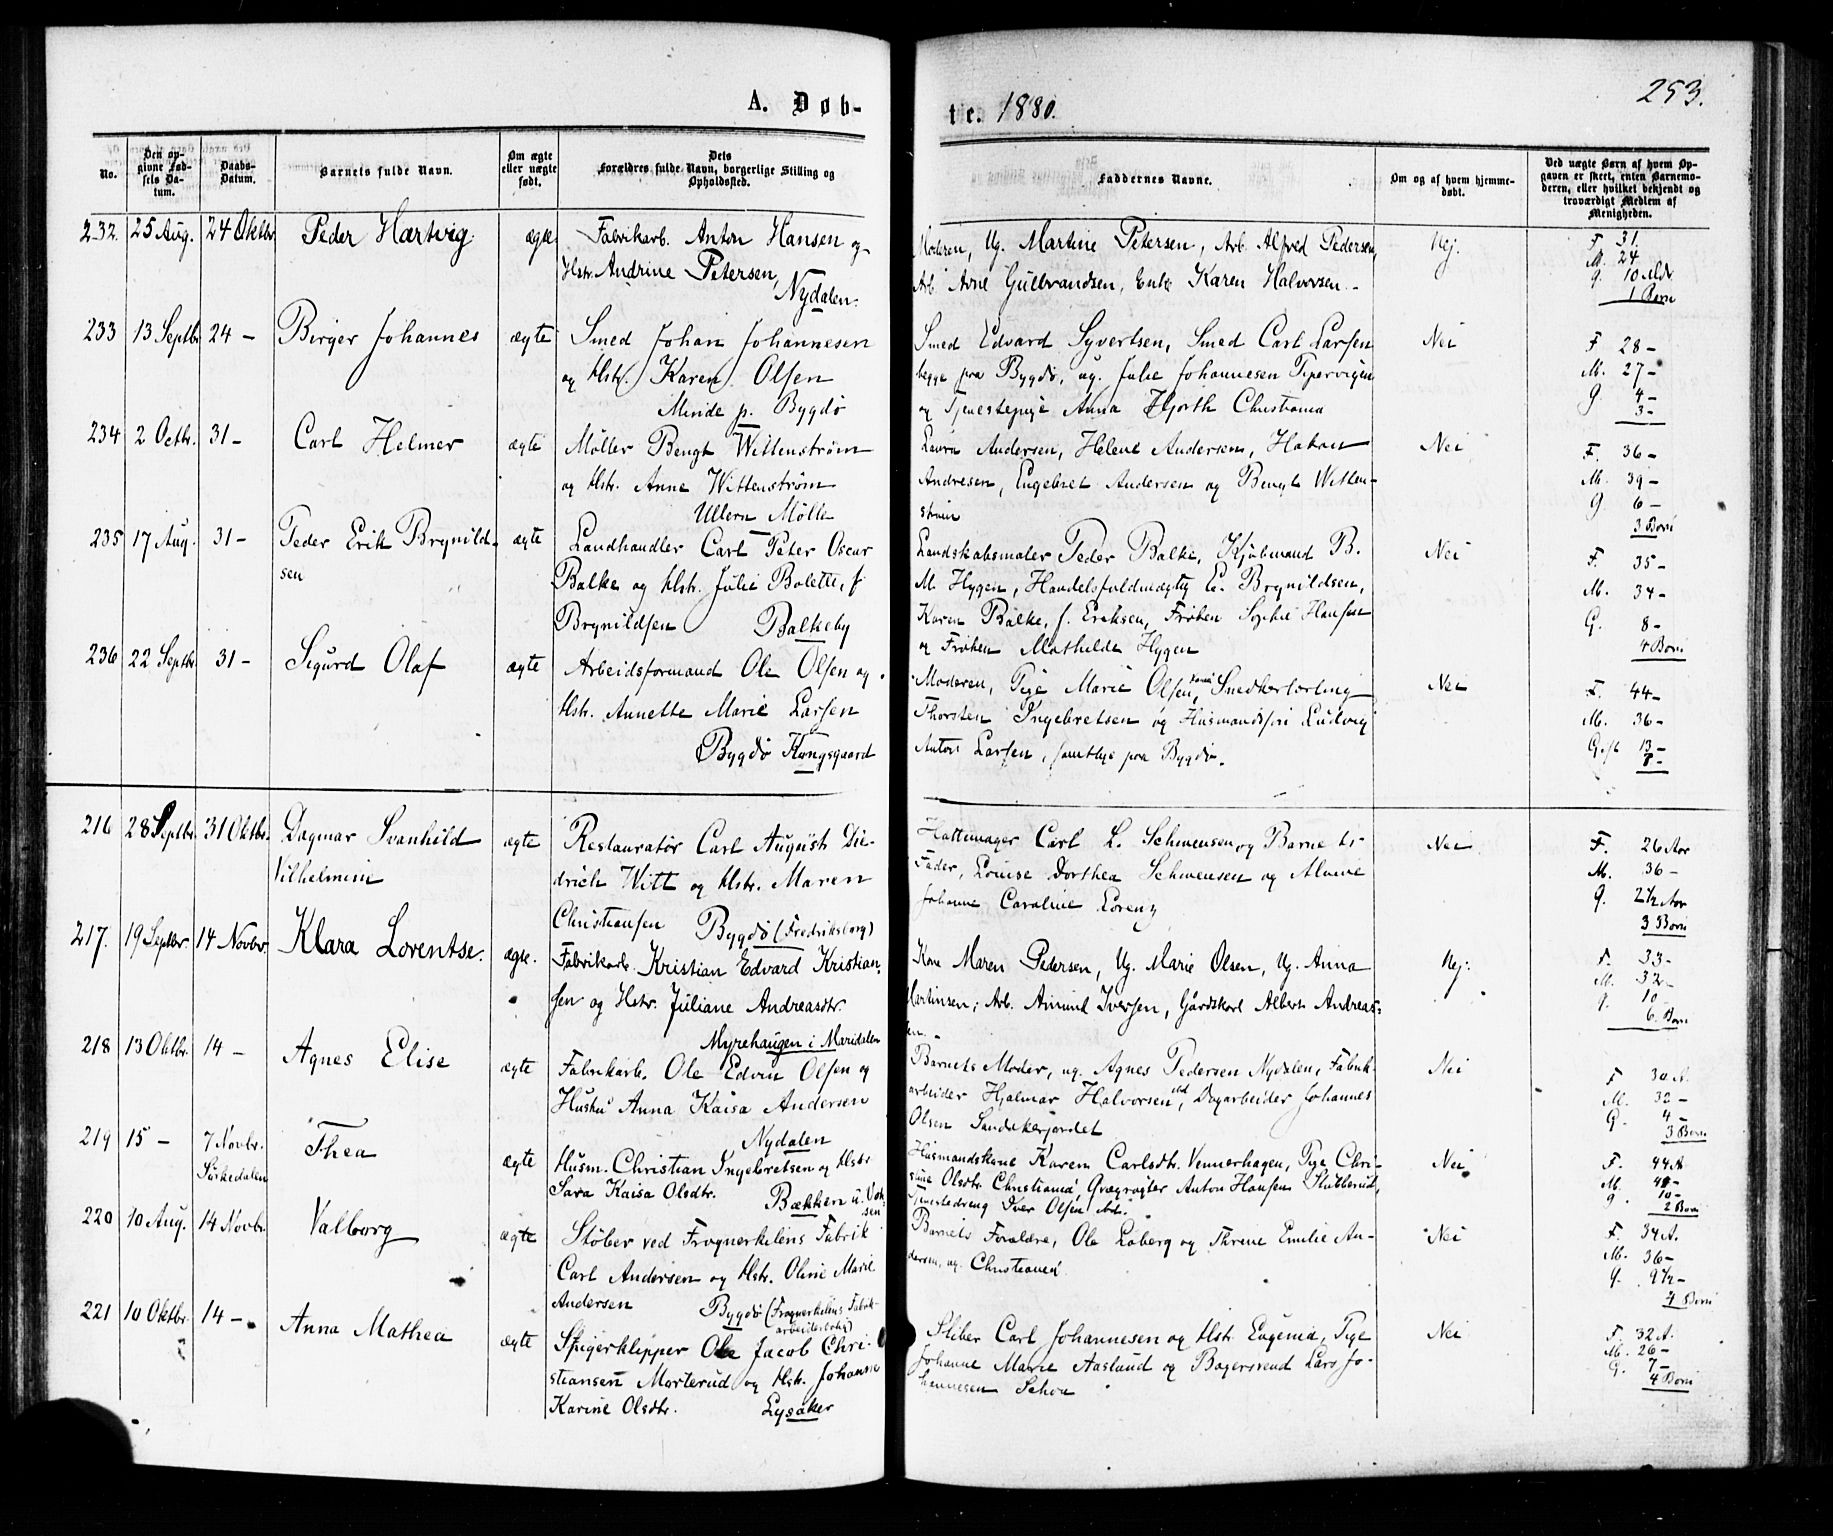 253.
A. Døb-
te. 1880.
No.
Den op-
givne Fød-
sels Da-
tum.
Daabs-
Datum.
Barnets fulde Navn.
Om ægte
eller uægte
født.
Dets
Forældres fulde Navn, borgerlige Stilling og
Opholdssted.
Faddernes Navne.
Om og af hvem hjemme-
døbt.
Ved uægte Børn af hvem Op-
gaven er skeet, enten Barnemo-
deren, eller hvilket bekjendt og
troværdigt Medlem af
Menigheden.
232. 25 Aug. 24 Oktbr. Peder Hartvig ægte Fabrikarb. Anton Hansen og
Hstr. Andrine Petersen,
Nydalen.
Moderen, Ug. Martine Petersen, Arb. Alfred Pedersen,
Arb. Arne Gulbrandsen, Enke Karen Halvorsen.
Nej.
F. 31
M. 24
G. 10 Mdr
1 Barn
233 13 Septbr 24 - Birger Johannes ægte Smed Johan Johannesen
og Hstr. Karen Olsen
Minde p. Bygdø
Smed Edvard Syvertsen, Smed Carl Larsen
begge fra Bygdø, ug. Julie Johannesen Pipervigen
og Tjenestepige Anna Hjorth Christiania
Nei
F 28 -
M. 27 -
G 4 -
3 -
234 2 Octbr. 31 - Carl Helmer ægte Møller Bengt Wittenstrøm
og Hstr. Anne Wittenstrøm
Ullern Mølle
Laura Andersen, Helene Andersen, Hakon
Andresen, Engebret Andersen og Bengt Witten-
strøm
Nei
F. 36 -
M. 39 -
G 6 -
3 Børn
235 17 Aug. 31 - Peder Erik Brynild-
sen
ægte Landhandler Carl Peter Oscar
Balke og Hstr. Julie Bolette, f.
Brynildsen Balkeby
Landskabsmaler Peder Balke, Kjøbmand B.
M. Hygen, Handelsfuldmægtig E. Brynildsen,
Karen Balke, f. Eriksen, Frøken Sophie Hansen
og Frøken Mathilde Hygen
Nei
F. 35 -
M. 34 -
G. 8 -
4 Børn
236 22 Septbr 31 - Sigurd Olaf ægte Arbeidsformand Ole Olsen og
Hstr. Annette Marie Larsen
Bygdø Kongsgaard
Moderen, Pige Marie Olsen, Snedkerlærling
Thorsten Ingebretsen og Husmandssøn Ludvig
Anton Larsen, samtlige fra Bygdø.
Nei
F. 44 -
M. 36 -
Gift 13 -
8 -
216 28 Septbr. 31 Oktbr. Dagmar Svanhild
Vilhelmine
ægte Restauratør Carl August Die-
drich Witt og Hstr. Maren
Christiansen Bygdø (Fredriksborg)
Hattemager Carl L. Schwensen og Barnets
Fader, Louise Dorthea Schwensen og Alvine
Johanne Caroline Lorenz
Nei
F. 26 Aar
M. 36 -
G. 2½ Aar
3 Børn
217. 19 Septbr. 14 Novbr. Klara Lorentse. ægte. Fabrikarb. Kristian Edvard Kristian-
sen og Hstr. Juliane Andreasdtr.
Myrehaugen i Maridalen
Kone Maren Pedersen, Ug. Marie Olsen, Ug. Anna
Martinsen, Arb. Amund Iversen, Gårdskarl Albert Andreas-
sen.
Nej.
F. 33 -
M. 32 -
G. 10 -
6. Børn
218 13 Oktbr. 14 - Agnes Elise ægte Fabrikarb. Ole Edvin Olsen og
Hustru Anna Kaisa Andersen
Nydalen
Barnets Moder, ug. Agnes Pedersen Nydalen, Fabrik-
arbeider Hjalmar Halvorsen ibd, Dagarbeider Johannes
Olsen Sandakerjordet
Nei
F 30 A.
M. 32 -
G. 4 -
3 Børn
219 15 - 7 Novbr.
Sørkedalen
Thea ægte Husm. Christian Ingebretsen og Hstr
Sara Kaisa Olsdtr. Bækken u. Vok-
sen
Husmandskone Karen Carlsdtr. Vennerhagen, Pige Chri-
stine Olsdtr. Christiania, Qvægrøgter Anton Hansen Slubberud,
Tjenestedreng Iver Olsen ibd.
Nei
F. 44 A
M. 48 -
G 10 -
2 Børn
220 10 Aug. 14 Novbr. Valborg ægte Støber ved Frognerkilens Fabrik
Carl Andersen og Hstr. Oline Marie
Andersen Bygdø (Frognerkilens Fabrik-
arbeiderbolig)
Barnets Forældre, Ole Løberg og Thrine Emilie An-
dersen, ug. Christiania
Nei
F. 34 A.
M. 36 -
G. 9½ -
4 Børn
221 10 Oktbr. 14 - Anna Mathea ægte Spigerklipper Ole Jacob Chri-
stiansen Morterud og Hstr. Johanne
Karine Olsdtr. Lysaker
Sliber Carl Johannesen og Hstr. Eugenia, Pige
Johanne Marie Aaslund og Bagersvend Lars Jo-
hannesen Schou
Nei
F. 32 A.
M. 26 -
G. 7 -
4 Børn